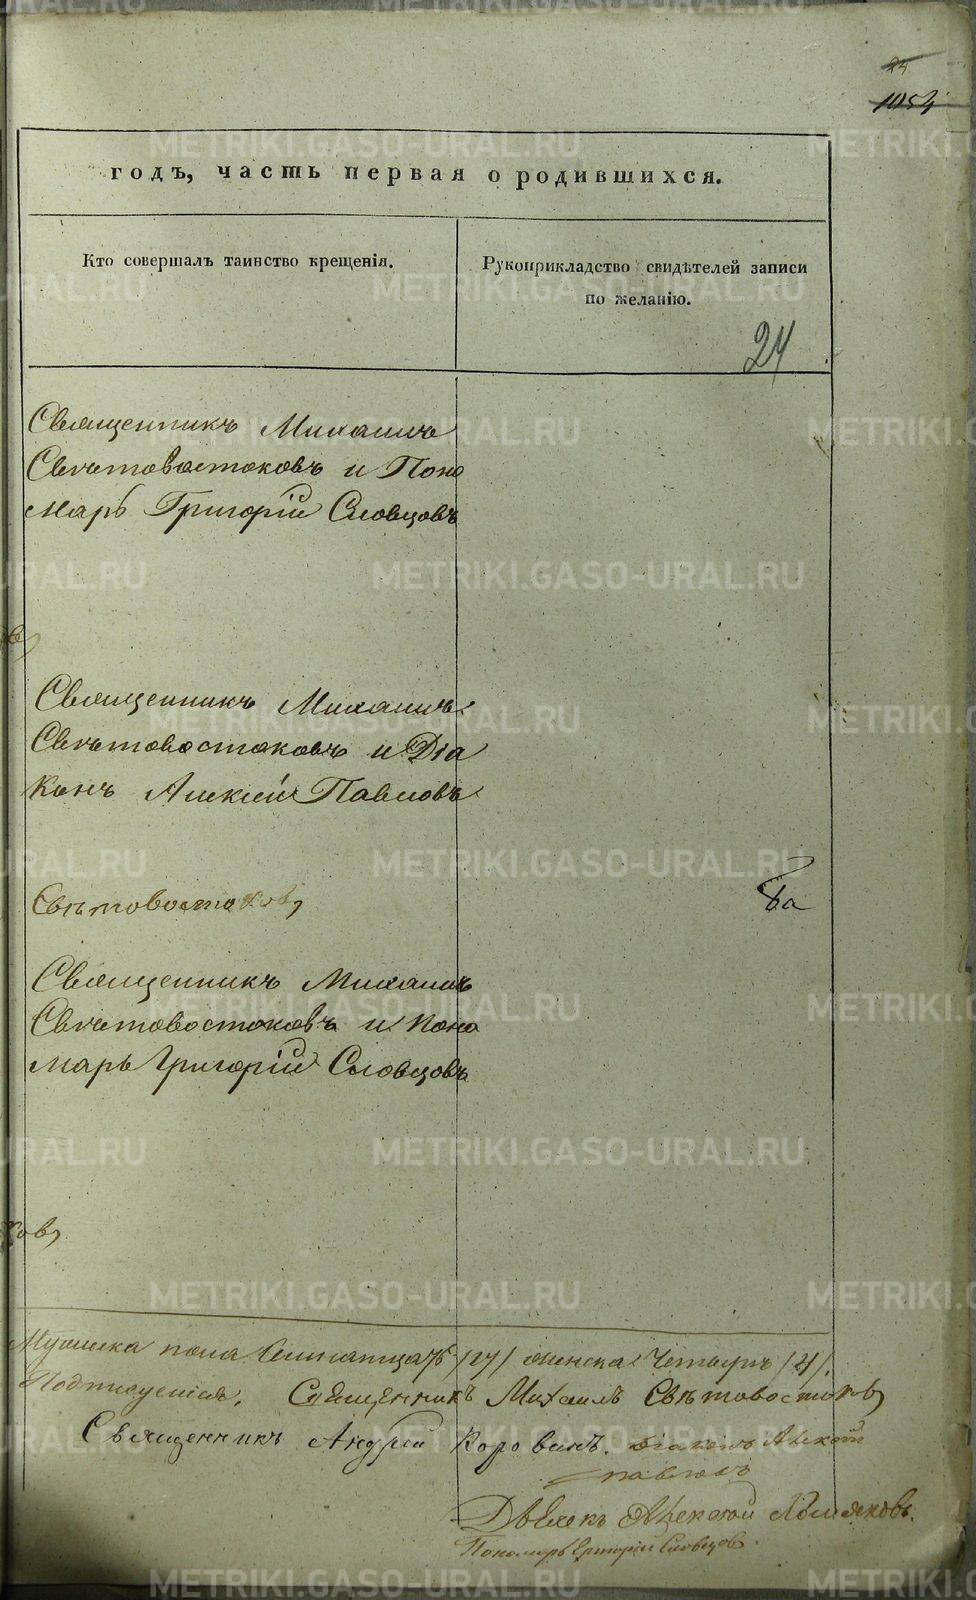 24
1054
годъ, часть первая о родившихся.
Кто совершалъ таинство крещенія.
Рукоприкладство свидѣтелей записи
по желанію.
24
Священникъ Михаилъ
Свѣтовостоковъ и Поно
марь Григорій Словцовъ
Священникъ Михаилъ
Свѣтовостоковъ и Діа
конъ Алексій Павловъ
Свѣтовостоковъ
Священникъ Михаилъ
Свѣтовостоковъ и поно
марь Григорій Словцовъ
ковъ
Мужеска пола /17/ женска Четыре /4/.
Священникъ Михаилъ Свѣтовостоковъ
Священникъ Андрей Коровинъ. Діаконъ Алексѣй
Павловъ
Дьячекъ Алексѣй
Пономарь Григорій Словцовъ.
METRIKI.GASO-URAL.RU